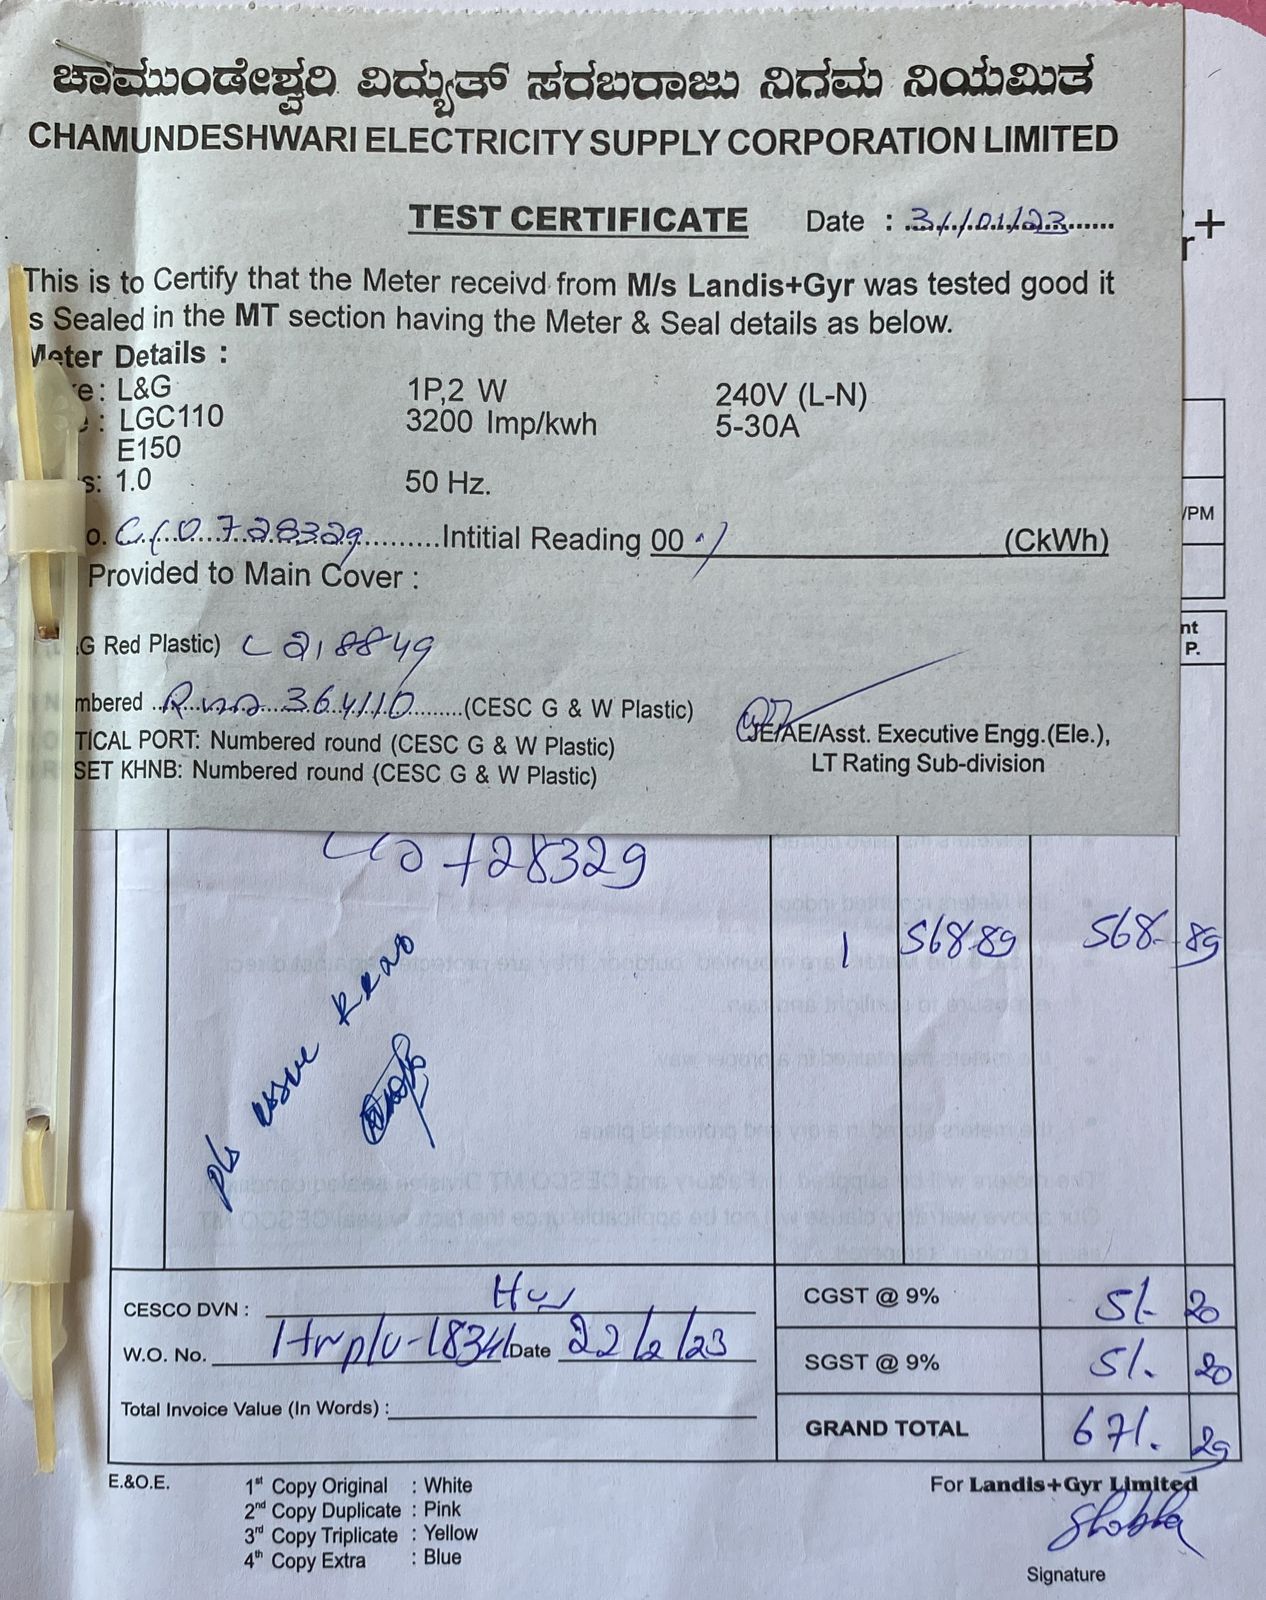 ಚಾಮುಂಡೇಶ್ವರಿ ವಿದ್ಯುತ್ ಸರಬರಾಜು ನಿಗಮ ನಿಯಮಿತ
CHAMUNDESHWARI ELECTRICITY SUPPLY CORPORATION LIMITED
TEST CERTIFICATE Date : 31/01/23
This is to Certify that the Meter receivd from M/s Landis+Gyr was tested good it
s Sealed in the MT section having the Meter & Seal details as below.
Meter Details :
e: L&G 1P,2 W 240V (L-N)
: LGC110 3200 Imp/kwh 5-30A
E150
s: 1.0 50 Hz.
o. 728329 Intitial Reading 00 (CkWh)
Provided to Main Cover :
G Red Plastic) 218849
mbered 364110 (CESC G & W Plastic)
JE/AE/Asst. Executive Engg.(Ele.),
TICAL PORT: Numbered round (CESC G & W Plastic)
LT Rating Sub-division
SET KHNB: Numbered round (CESC G & W Plastic)
/PM
nt
P.
728329
1 568.89 568 89
pls issue
CESCO DVN :
CGST @ 9% 51. 20
W.O. No. Date 22/2/23
SGST @ 9% 51. 20
Total Invoice Value (In Words) :
GRAND TOTAL 671. 29
E.&O.E.
1st Copy Original : White
2nd Copy Duplicate : Pink
3rd Copy Triplicate : Yellow
4th Copy Extra : Blue
For Landis+Gyr Limited
Shobha
Signature